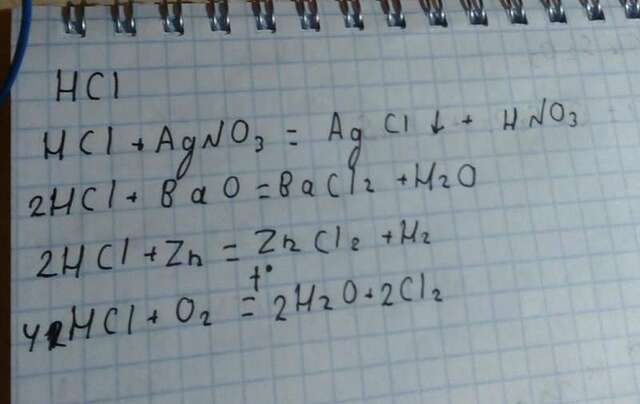 HCl
HCl + AgNO₃ = AgCl↓ + HNO₃
2HCl + BaO = BaCl₂ + H₂O
2HCl + Zn = ZnCl₂ + H₂
4HCl + O₂ =ᵗ° 2H₂O + 2Cl₂